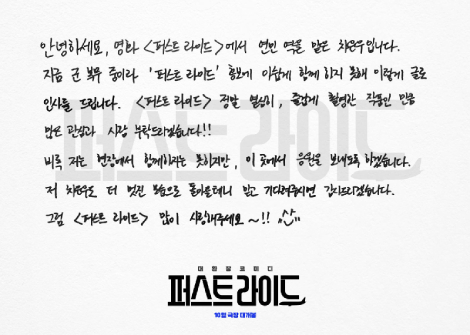 안녕하세요, 영화 <퍼스트 라이드>에서 연민 역을 맡은 차은우입니다.
지금 군 복무 중이라 '퍼스트 라이드' 홍보에 아쉽게 함께 하지 못해 이렇게 글로
인사를 드립니다. <퍼스트 라이드> 정말 열심히, 즐겁게 촬영한 작품인 만큼
많은 관심과 사랑 부탁드리겠습니다!!
비록 저는 현장에서 함께하지는 못하지만, 이 곳에서 응원을 보내도록 하겠습니다.
저 차은우도 더 멋진 모습으로 돌아올테니 믿고 기다려주시면 감사드리겠습니다.
그럼 <퍼스트 라이드> 많이 사랑해주세요~!!
퍼스트 라이드
10월 극장 대개봉